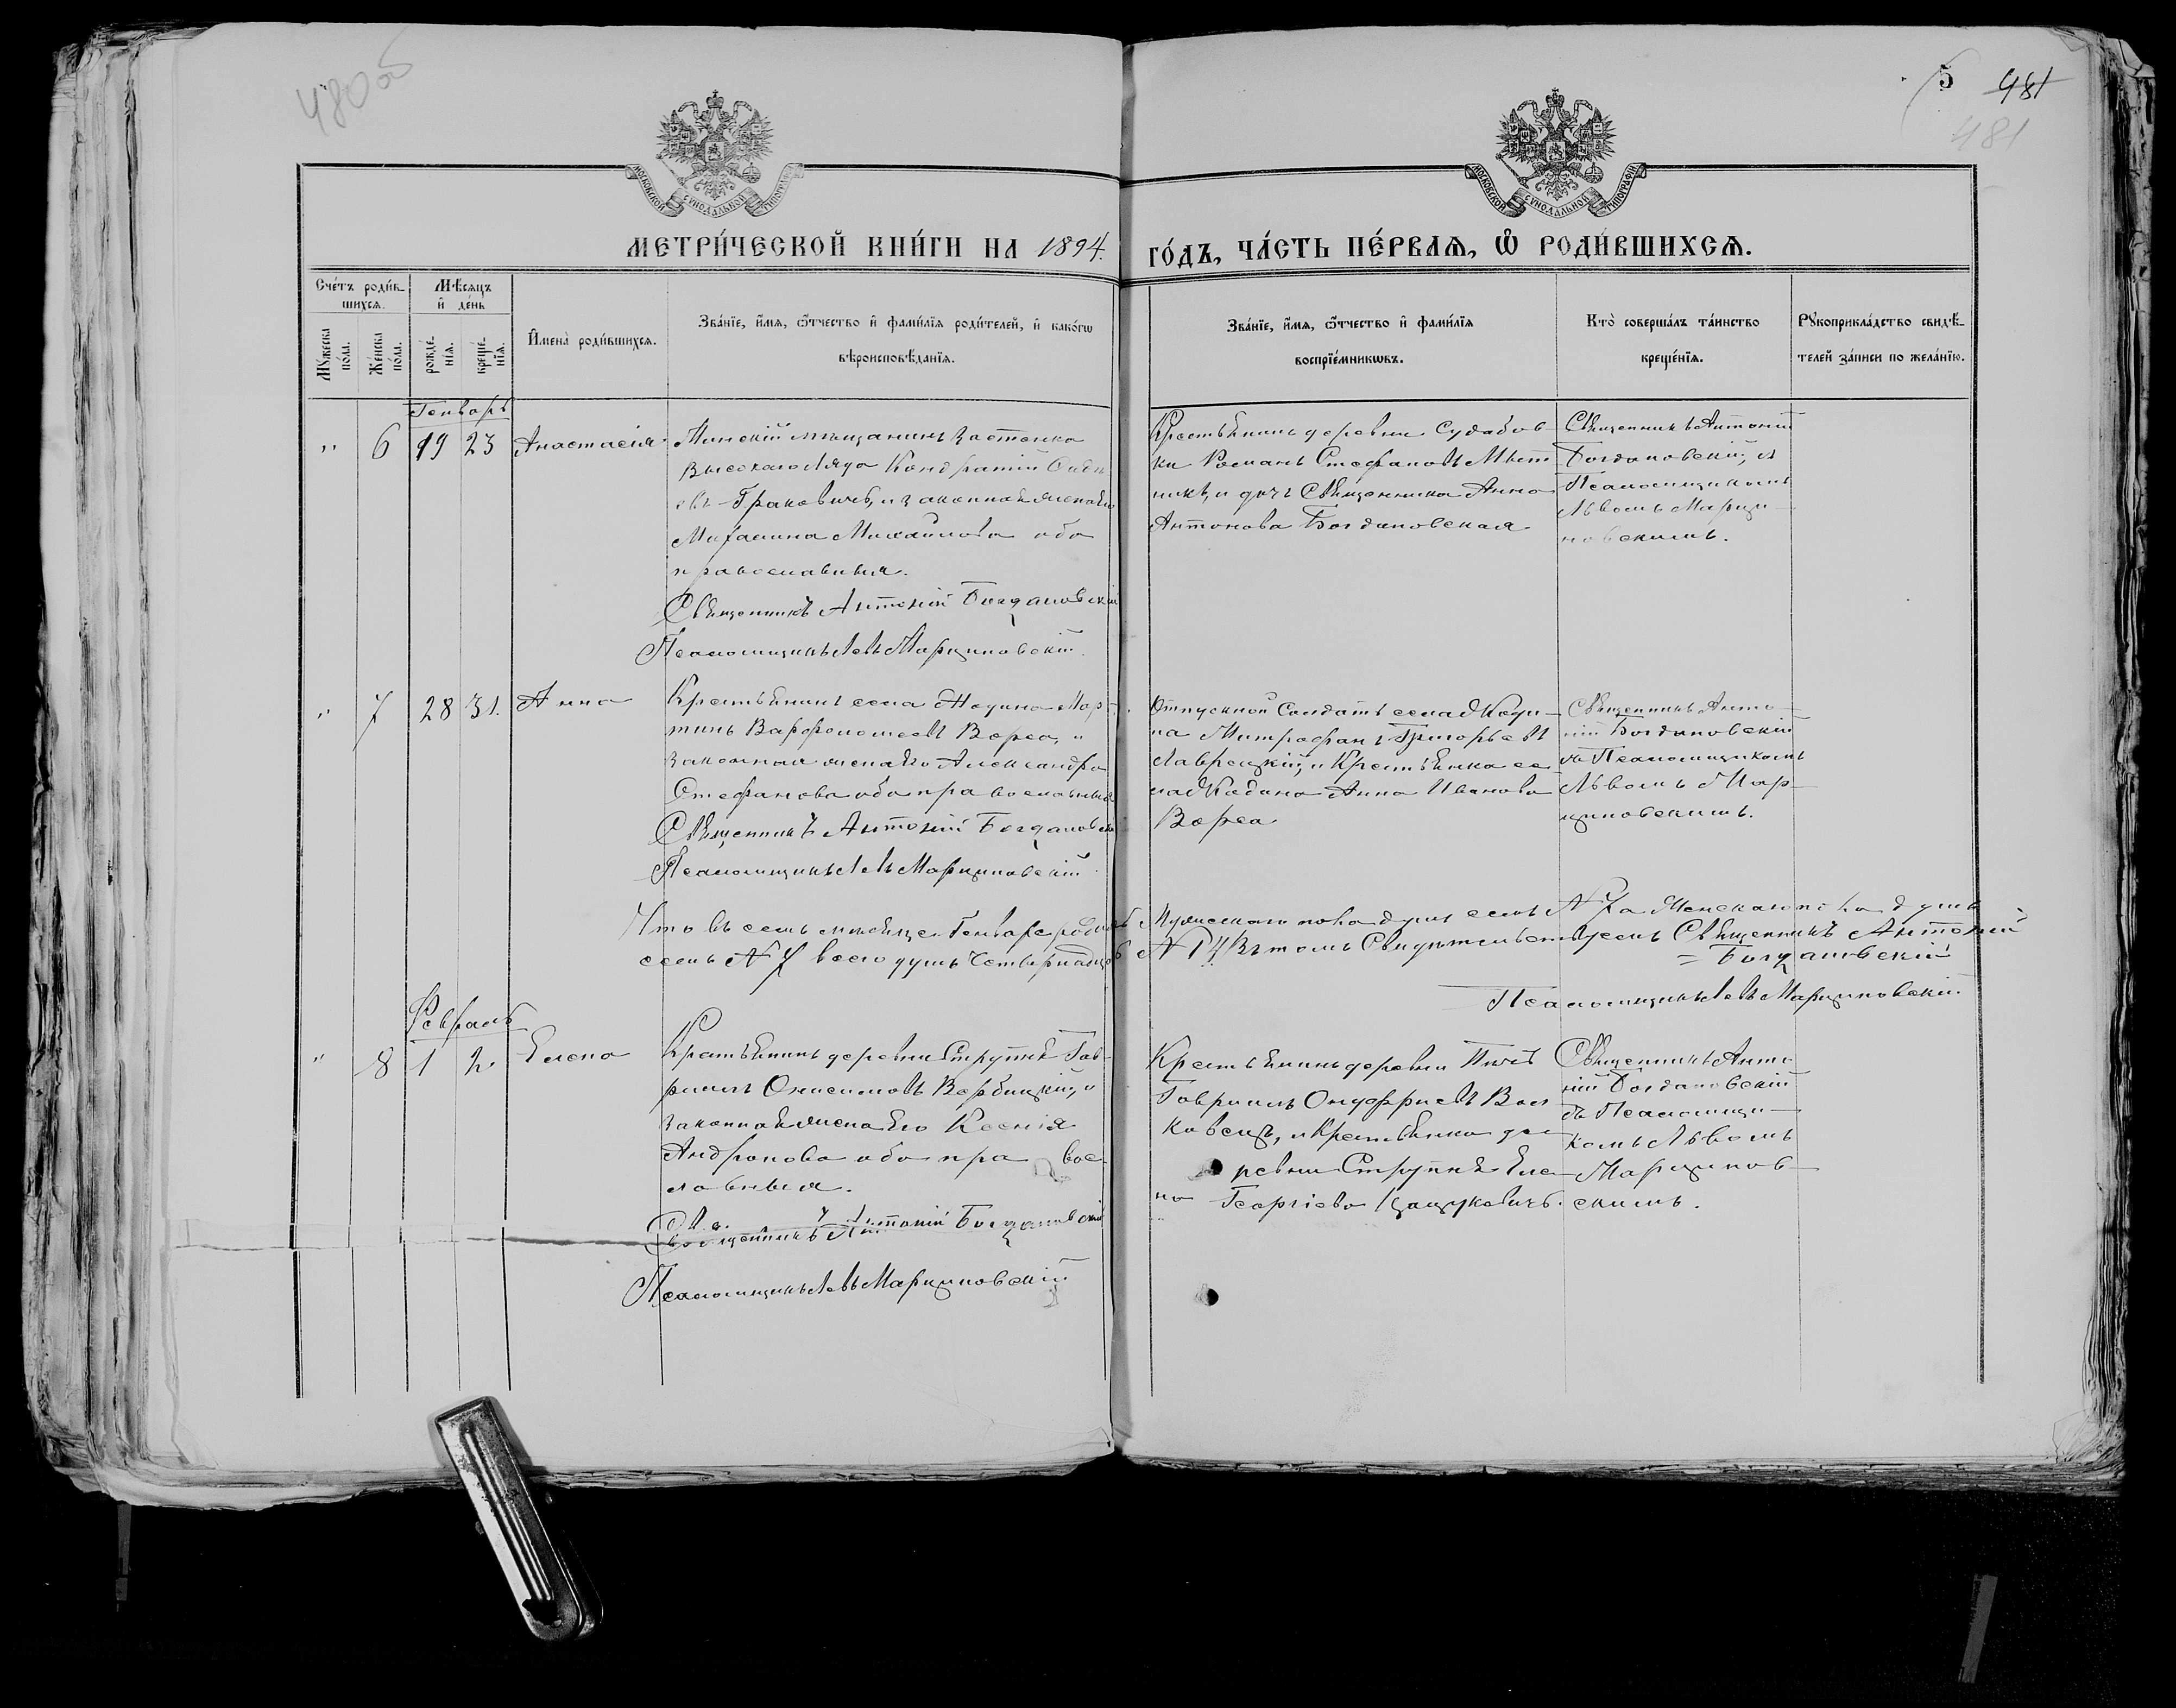 480 об
5 481
481
МОСКОВСКОЙ СѴНОДАЛЬНОЙ ТИПОГРАФІИ
МОСКОВСКОЙ СѴНОДАЛЬНОЙ ТИПОГРАФІИ
МЕТРИ́ЧЕСКОЙ КНИ́ГИ НА 1894. ГО́ДЪ, ЧА́СТЬ ПЕ́РВАѦ, Ѽ РОДИ́ВШИХСѦ.
Сче́тъ роди́в-
шихсѧ.
Мꙋ́жеска по́ла.
Же́нска по́ла.
Мѣ́сѧцъ
и҆ де́нь
рожде́-
нїѧ.
креще́-
нїѧ.
И҆мена̀ роди́вшихсѧ.
Зва́нїе, и҆́мѧ, ѻ҆́тчество и҆ фами́лїѧ роди́телей, и҆ како́гѡ
вѣроисповѣ́данїѧ.
Зва́нїе, и҆́мѧ, ѻ҆́тчество и҆ фами́лїѧ
воспрїе́мникѡвъ.
Кто̀ соверша́лъ та́инство
креще́нїѧ.
Рꙋкоприкла́дство свидѣ́-
телей за́писи по жела́нїю.
Генварь
" 6 19 23 Анастасія
Минскій мѣщанинъ застенка
Высокаго Ляда Кондратій
Гракевичъ, и законная жена его
Михайлова оба
православныя.
Священникъ Антоній Богдановскій
Псаломщикъ Левъ Марциновскій.
Крестьянинъ деревни Судабов
ки Романъ Стефановъ Мыт
никъ, и дочь Священника Анна
Антонова Богдановская
Священникъ Антоній
Богдановскій, съ
Псаломщикомъ
Львомъ Марци-
новскимъ.
" 7 28 31. Анна
Крестьянинъ села Жодина Мар-
тинъ Варфоломеевъ Верса, и
законная жена его Александра
Стефанова оба православныя
Священникъ Антоній Богдановскій
Псаломщикъ Левъ Марциновскій.
Отпускной Солдатъ села Жоди-
на Митрофанъ Григорьевъ
Лаврецкій, и Крестьянка се
ла Жодина Анна Иванова
Верса
Священникъ Анто-
ній Богдановскій
съ Псаломщикомъ
Львомъ Мар-
циновскимъ.
Что въ семъ мѣсяце Генваре родилось Мужескаго пола душъ семь № 7 а Женскаго пола душъ
семь № 7 всего душъ Четырнадцать № 14 Въ томъ Свидѣтельствуемъ Священникъ Антоній
= Богдановскій
Псаломщикъ Левъ Марциновскій.
Февраль
" 8 1 2 Елена
Крестьянинъ деревни Струпня Гав-
риилъ Онисимовъ Вербицкій, и
законная жена его Ксенія
Андронова оба пра вос-
лавныя.
Священникъ Антоній Богдановскій
Псаломщикъ Левъ Марциновскій
Крестьянинъ деревни
Гавриилъ Онуфріевъ Вол
ковецъ, и Крестьянка де
ревни Струпня Еле
на Георгіева Цацукевичъ.
Священникъ Анто
ній Богдановскій
съ Псаломщи-
комъ Львомъ
Марцинов-
скимъ.